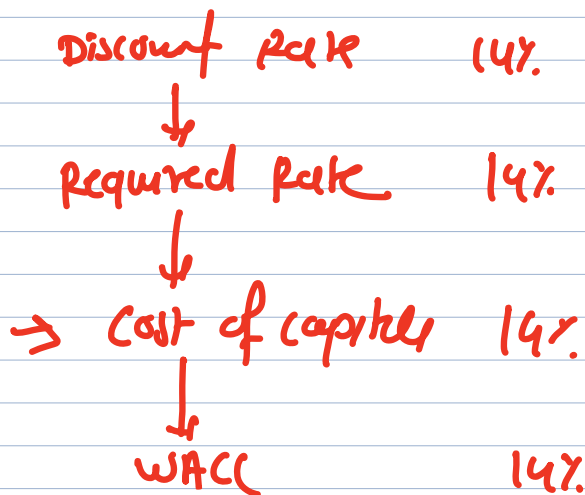 Discount Rate 14%
Required Rate 14%
→ Cost of capital 14%
WACC 14%